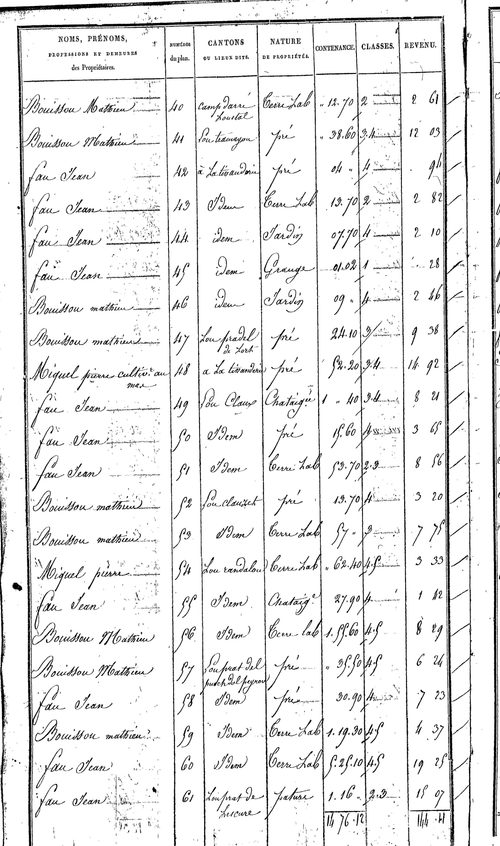 NOMS, PRÉNOMS, PROFESSIONS ET DEMEURES des Propriétaires. NUMÉROS du plan. CANTONS OU LIEUX DITS. NATURE DE PROPRIÉTÉS. CONTENANCE. CLASSES. REVENU.
Bouisson Mathieu 40 camp darré Loustal Terre Lab " 12.70 2 2 61
Bouisson Mathieu 41 pré " 38.60 3.4 12 03
fau Jean 42 pré 04 " 4 . 94
fau Jean 43 Idem Terre Lab 13.70 2 2 82
fau Jean 44 idem Jardin 07.70 4 2 10
fau Jean 45 idem Grange 01.02 1 . 28
Bouisson mathieu 46 idem Jardin 09 " 4 2 46
Bouisson mathieu 47 Lou pradel de Lort pré 24.10 3 9 38
Miquel pierre cultiv. au mas 48 pré 52.20 3.4 14 92
fau Jean 49 Lou Claux Chataig. 1 " 40 3.4 8 21
fau Jean 50 Idem pré 15.60 4 3 65
fau Jean 51 Idem Terre Lab 53.70 2.3 8 56
Bouisson mathieu 52 Lou clauzet pré 13.70 4 3 20
Bouisson mathieu 53 Idem Terre Lab 57 " 3 7 75
Miquel pierre 54 Lou randalou Terre Lab " 62.40 4.5 3 33
fau Jean 55 Idem Chataig. 27.90 4 1 42
Bouisson Mathieu 56 Idem Terre lab 1.55.60 4.5 8 29
Bouisson Mathieu 57 Lou prat del pré " 35.50 4.5 6 24
fau Jean 58 Idem pré 30.90 4 7 23
Bouisson mathieu 59 Idem Terre Lab 1.19.30 4.5 4 37
fau Jean 60 Idem Terre Lab 5.25.10 4.5 19 25
fau Jean 61 Lou prat de Lescure pature 1.16 " 2.3 15 07
14 76.12 144.41